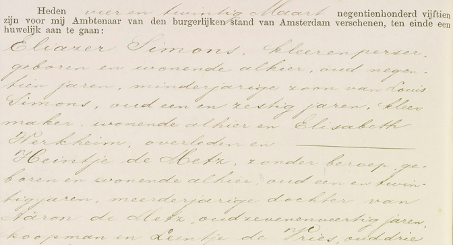 Heden vier en twintig Maart negentienhonderd vijftien
zijn voor mij Ambtenaar van den burgerlijken stand van Amsterdam verschenen, ten einde een
huwelijk aan te gaan:
Eliazer Simons, kleerenperser,
geboren en wonende alhier, oud negen-
tien jaren, minderjarige zoon van Louis
Simons, oud een en zestig jaren, kleer
maker, wonende alhier en Elisabeth
Werkheim, overleden en
Heintje de Metz, zonder beroep, ge-
boren en wonende alhier, oud een en twin-
tig jaren, meerderjarige dochter van
Aäron de Metz, oud zevenenveertig jaren,
koopman en Leintje de Vries, oud drie